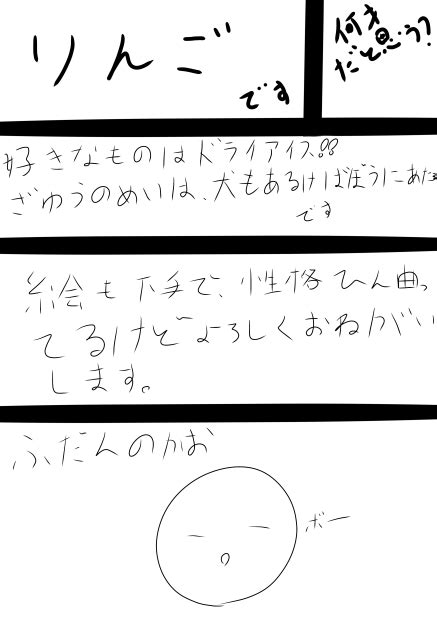 りんご
です
何才
だと思う?
好きなものはドライアイス!!
ざゆうのめいは、犬もあるけばぼうにあたる
です
絵も下手で、性格ひん曲っ
てるけどよろしくおねがい
します。
ふだんのかお
ボー